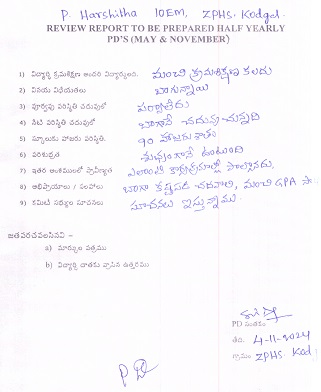 P. Harshitha 10EM, ZPHS. Kodgal.
REVIEW REPORT TO BE PREPARED HALF YEARLY
PD'S (MAY & NOVEMBER)
1) విద్యార్థి క్రమశిక్షణ అందరి విద్యార్థులు. మంచి క్రమశిక్షణ కలదు
2) వినయ విధేయతలు బాగున్నాయి
3) పూర్వపు పరిస్థితి చదువులో పర్వాలేదు
4) నేటి పరిస్థితి చదువులో బాగానే చదువుచున్నది
5) స్కూలుకు హాజరు శాతం. 90 హాజరు శాతం
6) పరిశుభ్రత శుభ్రంగానే ఉంటుంది
7) ఇతర అంశములలో ప్రావీణ్యత
8) అభిప్రాయాలు / సలహాలు బాగా కష్టపడి చదవాలి, మంచి GPA
9) కమిటీ సభ్యుల సూచనలు సూచనలు ఇస్తున్నాము.
జతపరచవలసినవి –
a) మార్కుల పత్రము
b) విద్యార్థి చాతకు వ్రాసిన ఉత్తరము
PD సంతకం
తేది. 4-11-2024
గ్రామం ZPHS. Kod